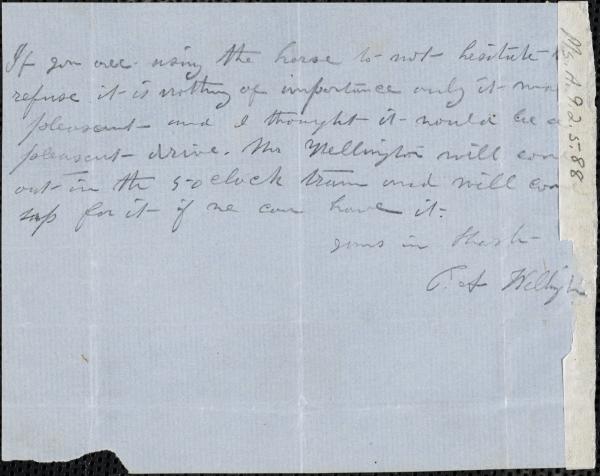 If you are using the horse do not hesitate
refuse it is nothing of importance only it
pleasant and I thought it would be a
pleasant drive. Mr Wellington will com
out in the 5 oclock train and will com
up for it if we can have it.
yours in haste
Wellingt
Ms.A.9.2.5.88